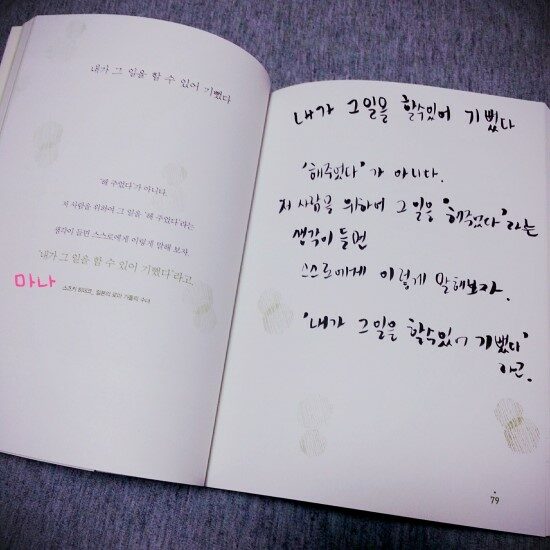 내가 그 일을 할 수 있어 기뻤다
'해 주었다'가 아니다.
저 사람을 위하여 그 일을 '해 주었다'라는
생각이 들면 스스로에게 이렇게 말해 보자.
'내가 그 일을 할 수 있어 기뻤다'라고.
마나
내가 그일을 할수있어 기뻤다
'해주었다'가 아니다.
저 사람을 위하여 그 일을 '해주었다'라는
생각이 들면
스스로에게 이렇게 말해보자.
'내가 그일을 할수있어 기뻤다'
라고.
79